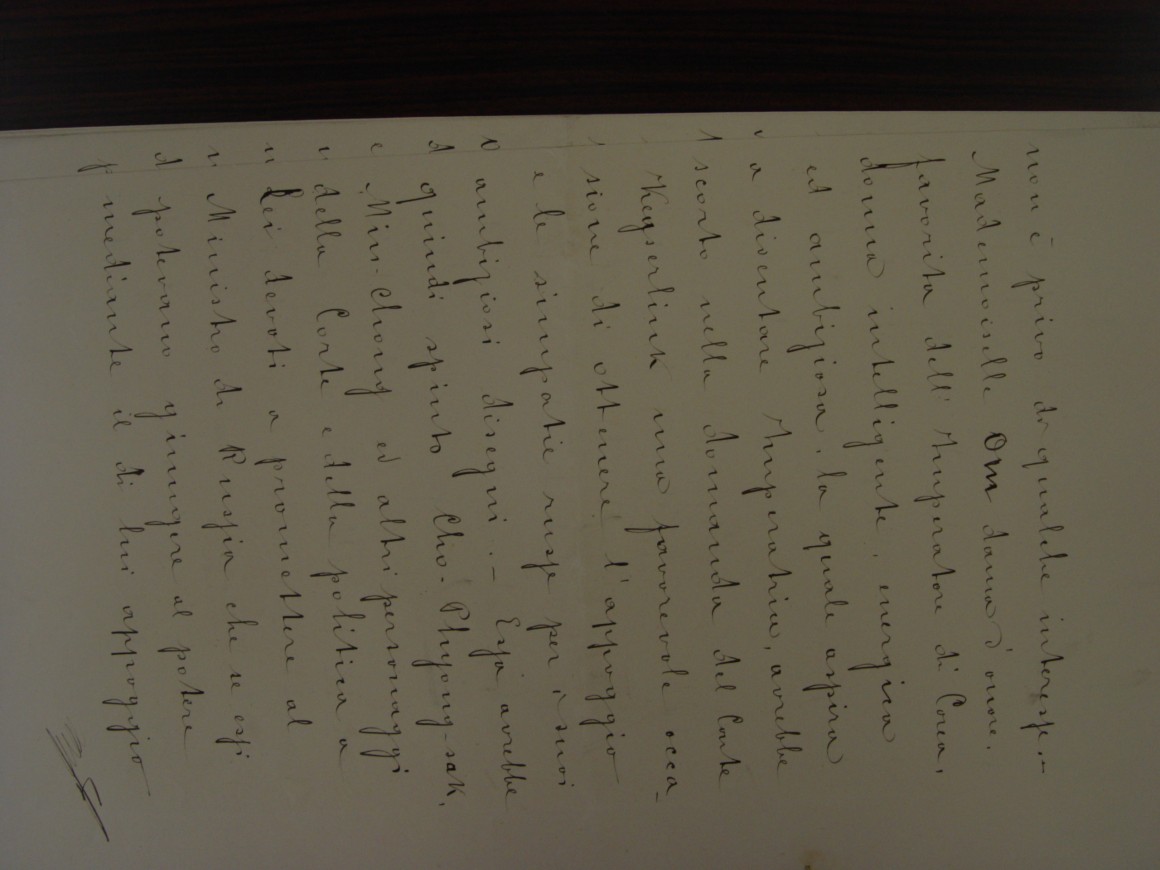 non è privo di qualche interesse.–
Mademoiselle Om dama d'onore,
favorita dell'Imperatore di Corea,
donna intelligente, energica
ed ambiziosa, la quale aspira
a diventare Imperatrice, avrebbe
scorto nella domanda del Conte
Keyserlink una favorevole occa-
sione di ottenere l'appoggio
e le simpatie russe per i suoi
ambiziosi disegni.– Essa avrebbe
quindi spinto Cho-Phyong-sak,
Min-Chong ed altri personaggi
della Corte e della politica a
Lei devoti a promettere al
Ministro di Russia che se essi
potevano giungere al potere
mediante il di lui appoggio